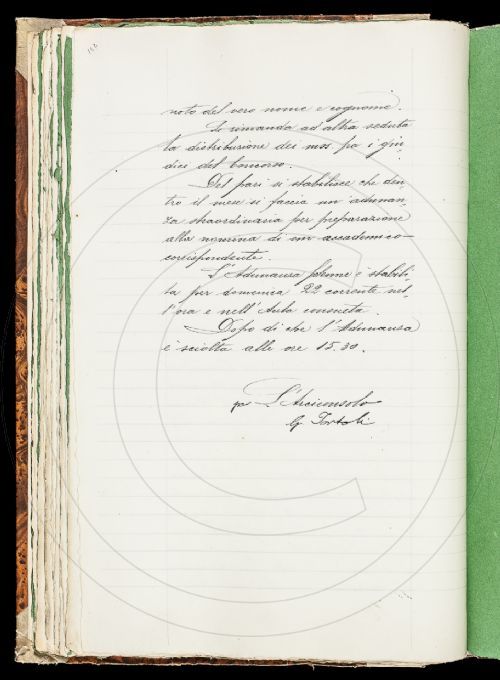 noto del vero nome e cognome.
Si rimanda ad altra seduta
la distribuzione dei mss. fra i giu-
dici del Concorso.
Del pari si stabilisce che den-
tro il mese si faccia un'adunan-
za straordinaria per preparazione
alla nomina di un accademico
corrispondente.
L'Adunanza solenne è stabili-
ta per domenica 22 corrente nel-
l'ora e nell'Aula consueta.
Dopo di che l'Adunanza
è sciolta alle ore 15.30.
L'Arciconsolo
G. Tortoli